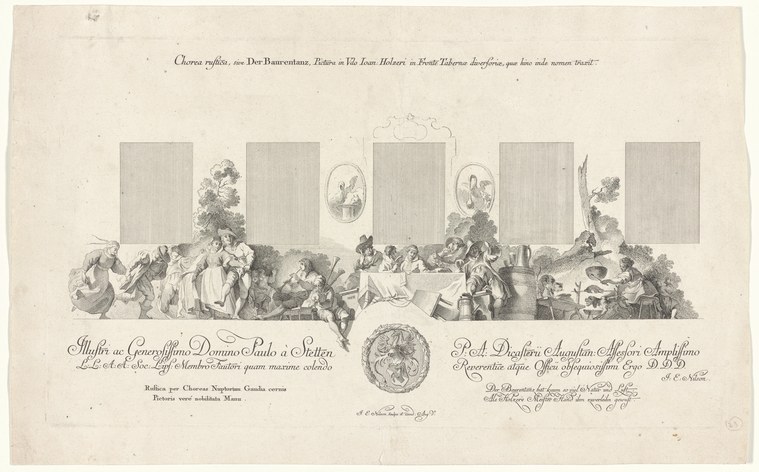 Chorea rustica, sive Der Baurentanz, Pictura in Udo Ioan. Holzeri in Fronte Tabernæ diversoriæ, quæ hinc inde nomen traxit.
Illustri ac Generosissimo Domino Paulo à Stetten
L.L. A.A. Soc. Lips. Membro Fautori quam maxime colendo
P. A. Dicasterii Augustan: Assessori Amplissimo
Reverentiæ atque Officii obsequiosissimi Ergo D.D.D.
J. E. Nilson.
Rustica per Choreas Nuptarum Gaudia cernis
Pictoris vere nobilitata Manu
Der Baurentanz hat kaum so viel Natur und
Als Holzers Meister Hand den
J. E. Nilson